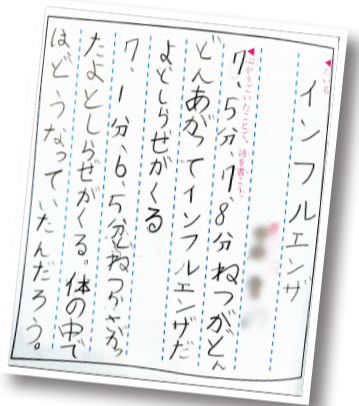 だい名
インフルエンザ
心がうごいたことで、詩を書こう。
7、5分、7、8分ねつがどん
どんあがってインフルエンザだ
よとしらせがくる
7、1分、6、5分とねつがさがっ
たよとしらせがくる。体の中で
はどうなっていたんだろう。